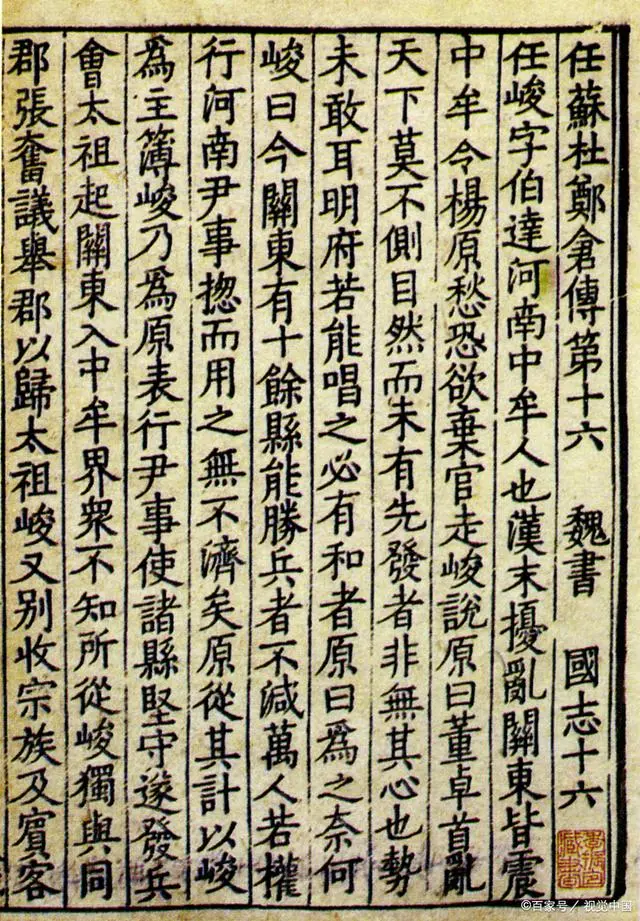 任蘇杜鄭倉傳第十六 魏書 國志十六
任峻字伯達河南中牟人也漢末擾亂關東皆震
中牟令楊原愁恐欲棄官走峻說原曰董卓首亂
天下莫不側目然而未有先發者非無其心也勢
未敢耳明府若能唱之必有和者原曰爲之奈何
峻曰今關東有十餘縣能勝兵者不減萬人若權
行河南尹事揔而用之無不濟矣原從其計以峻
爲主簿峻乃爲原表行尹事使諸縣堅守遂發兵
會太祖起關東入中牟界衆不知所從峻獨與同
郡張奮議舉郡以歸太祖峻又別收宗族及賓客
©百家号／视觉中国